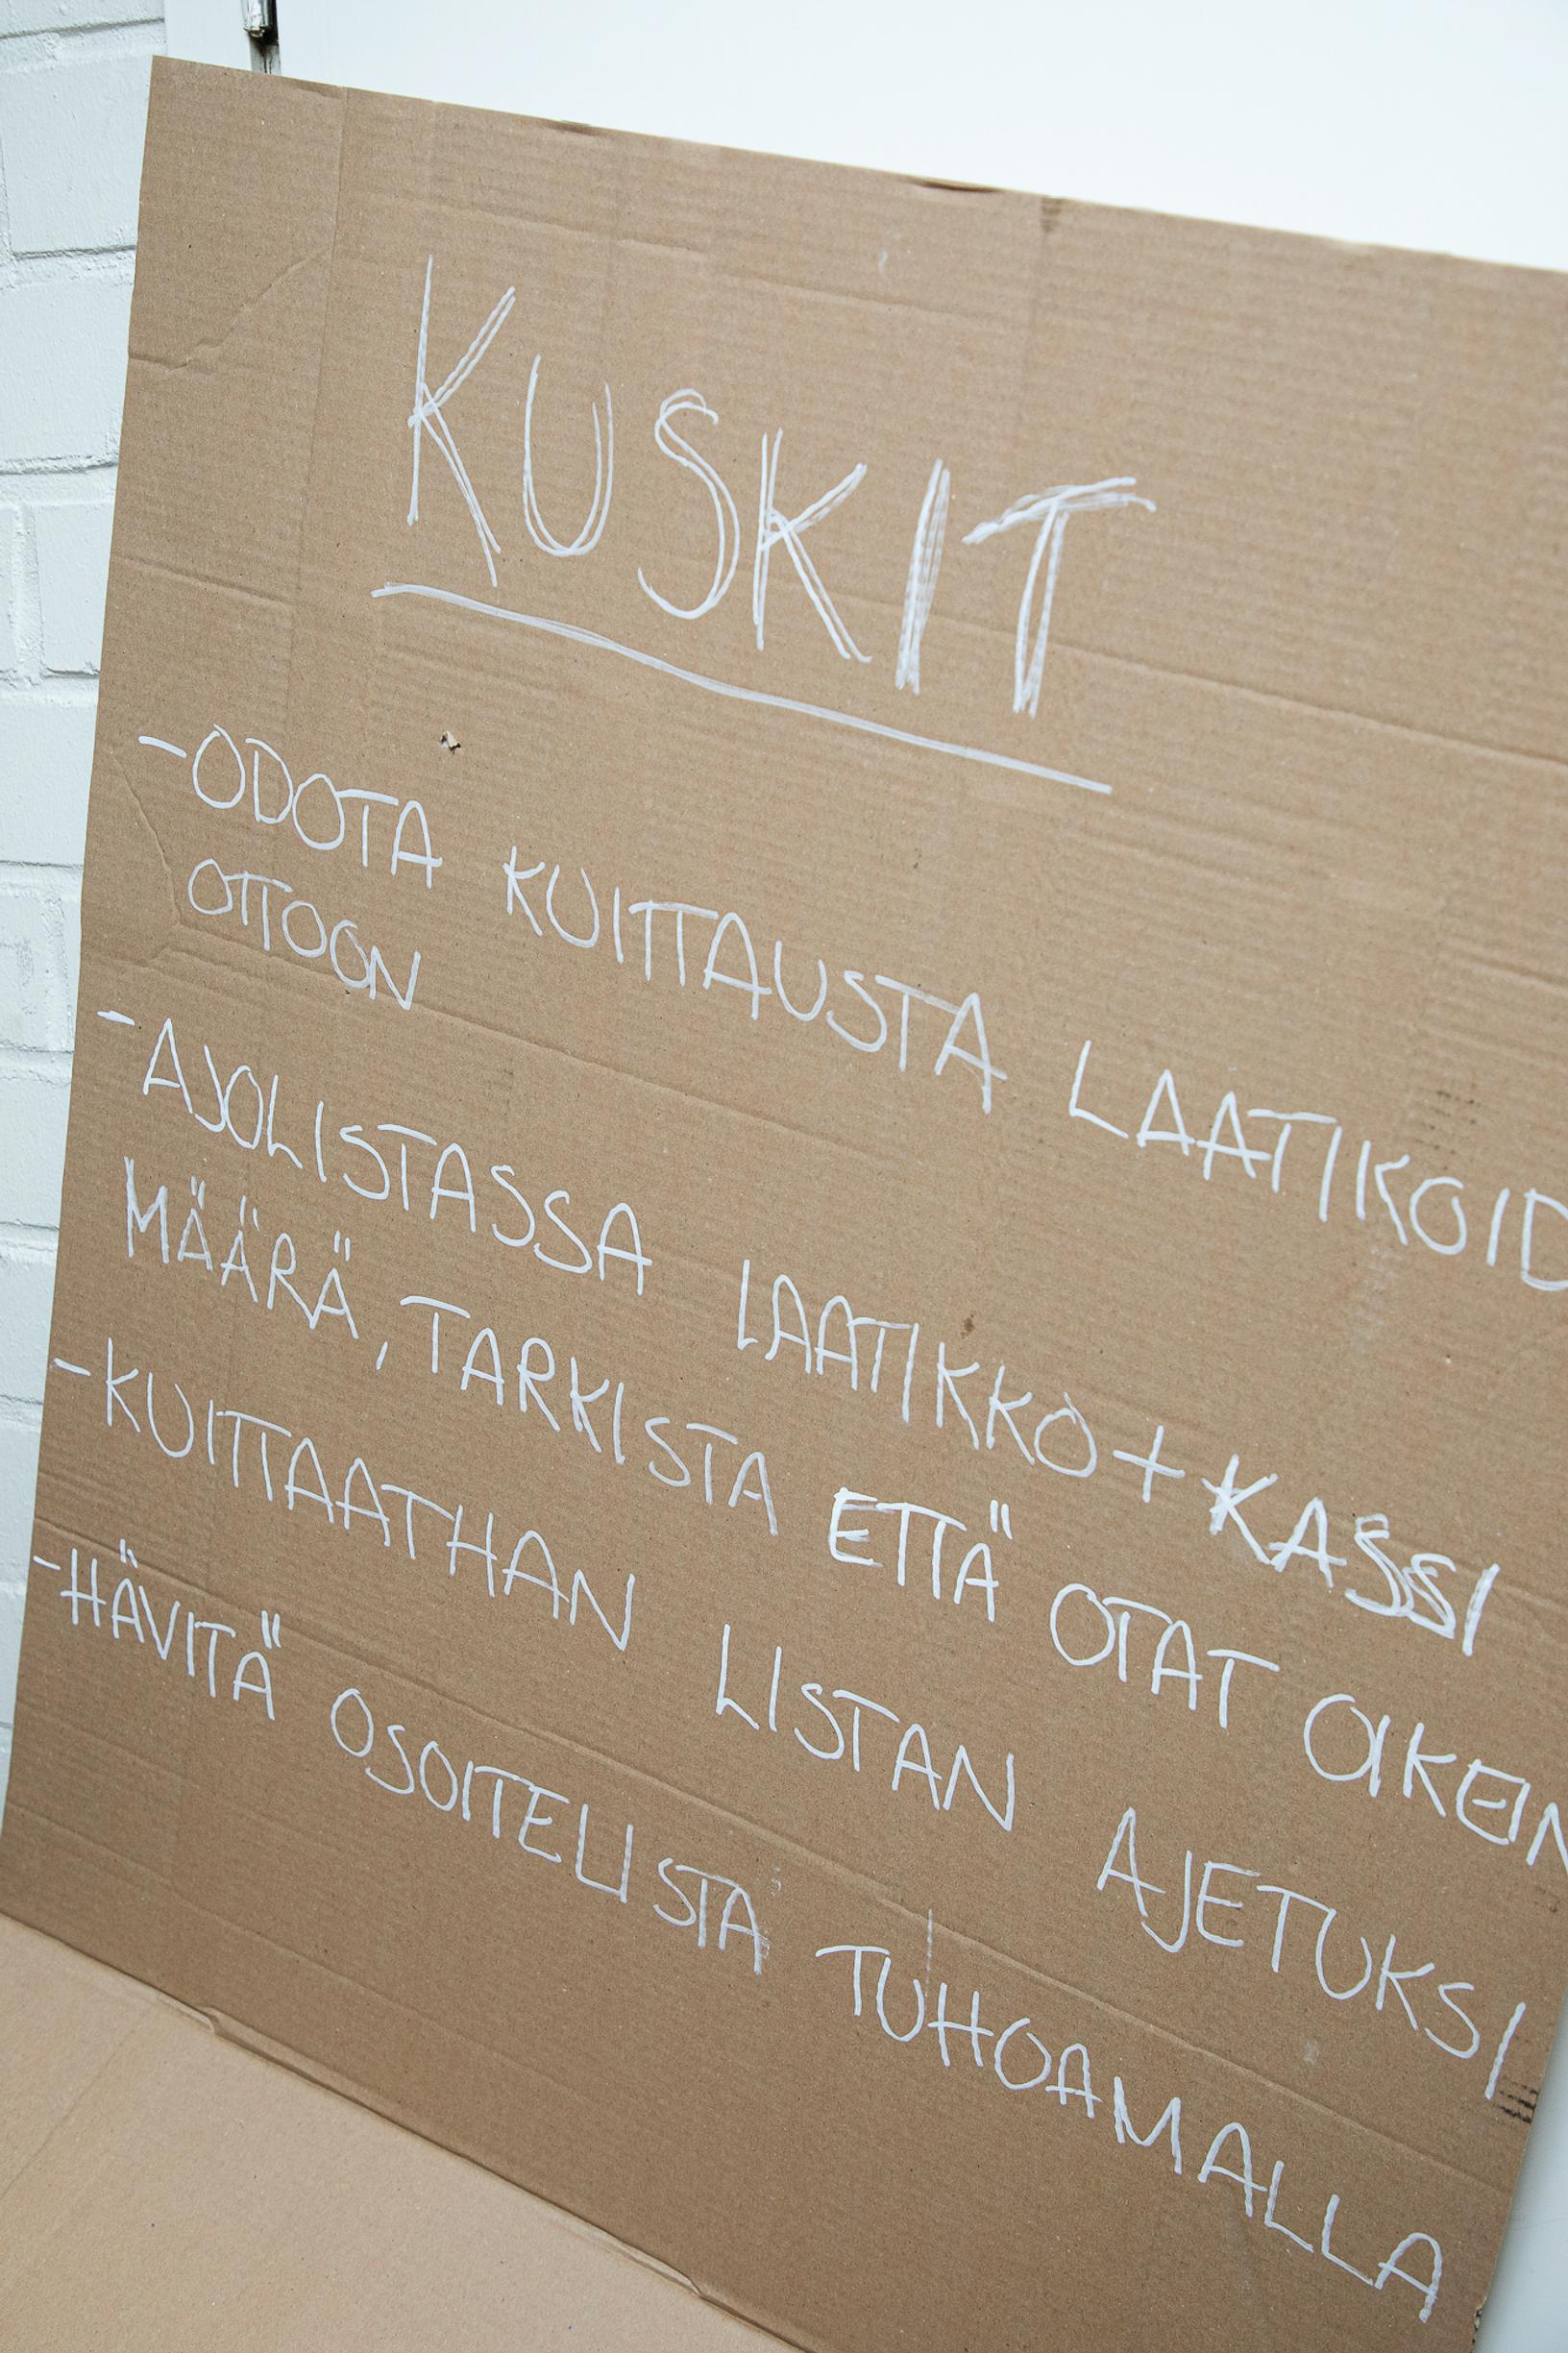 KUSKIT
-ODOTA KUITTAUSTA LAATIKOID
OTTOON
-AJOLISTASSA LAATIKKO+KASSI
MÄÄRÄ, TARKISTA ETTÄ OTAT OIKEIN
-KUITTAATHAN LISTAN AJETUKSI
-HÄVITÄ OSOITELISTA TUHOAMALLA